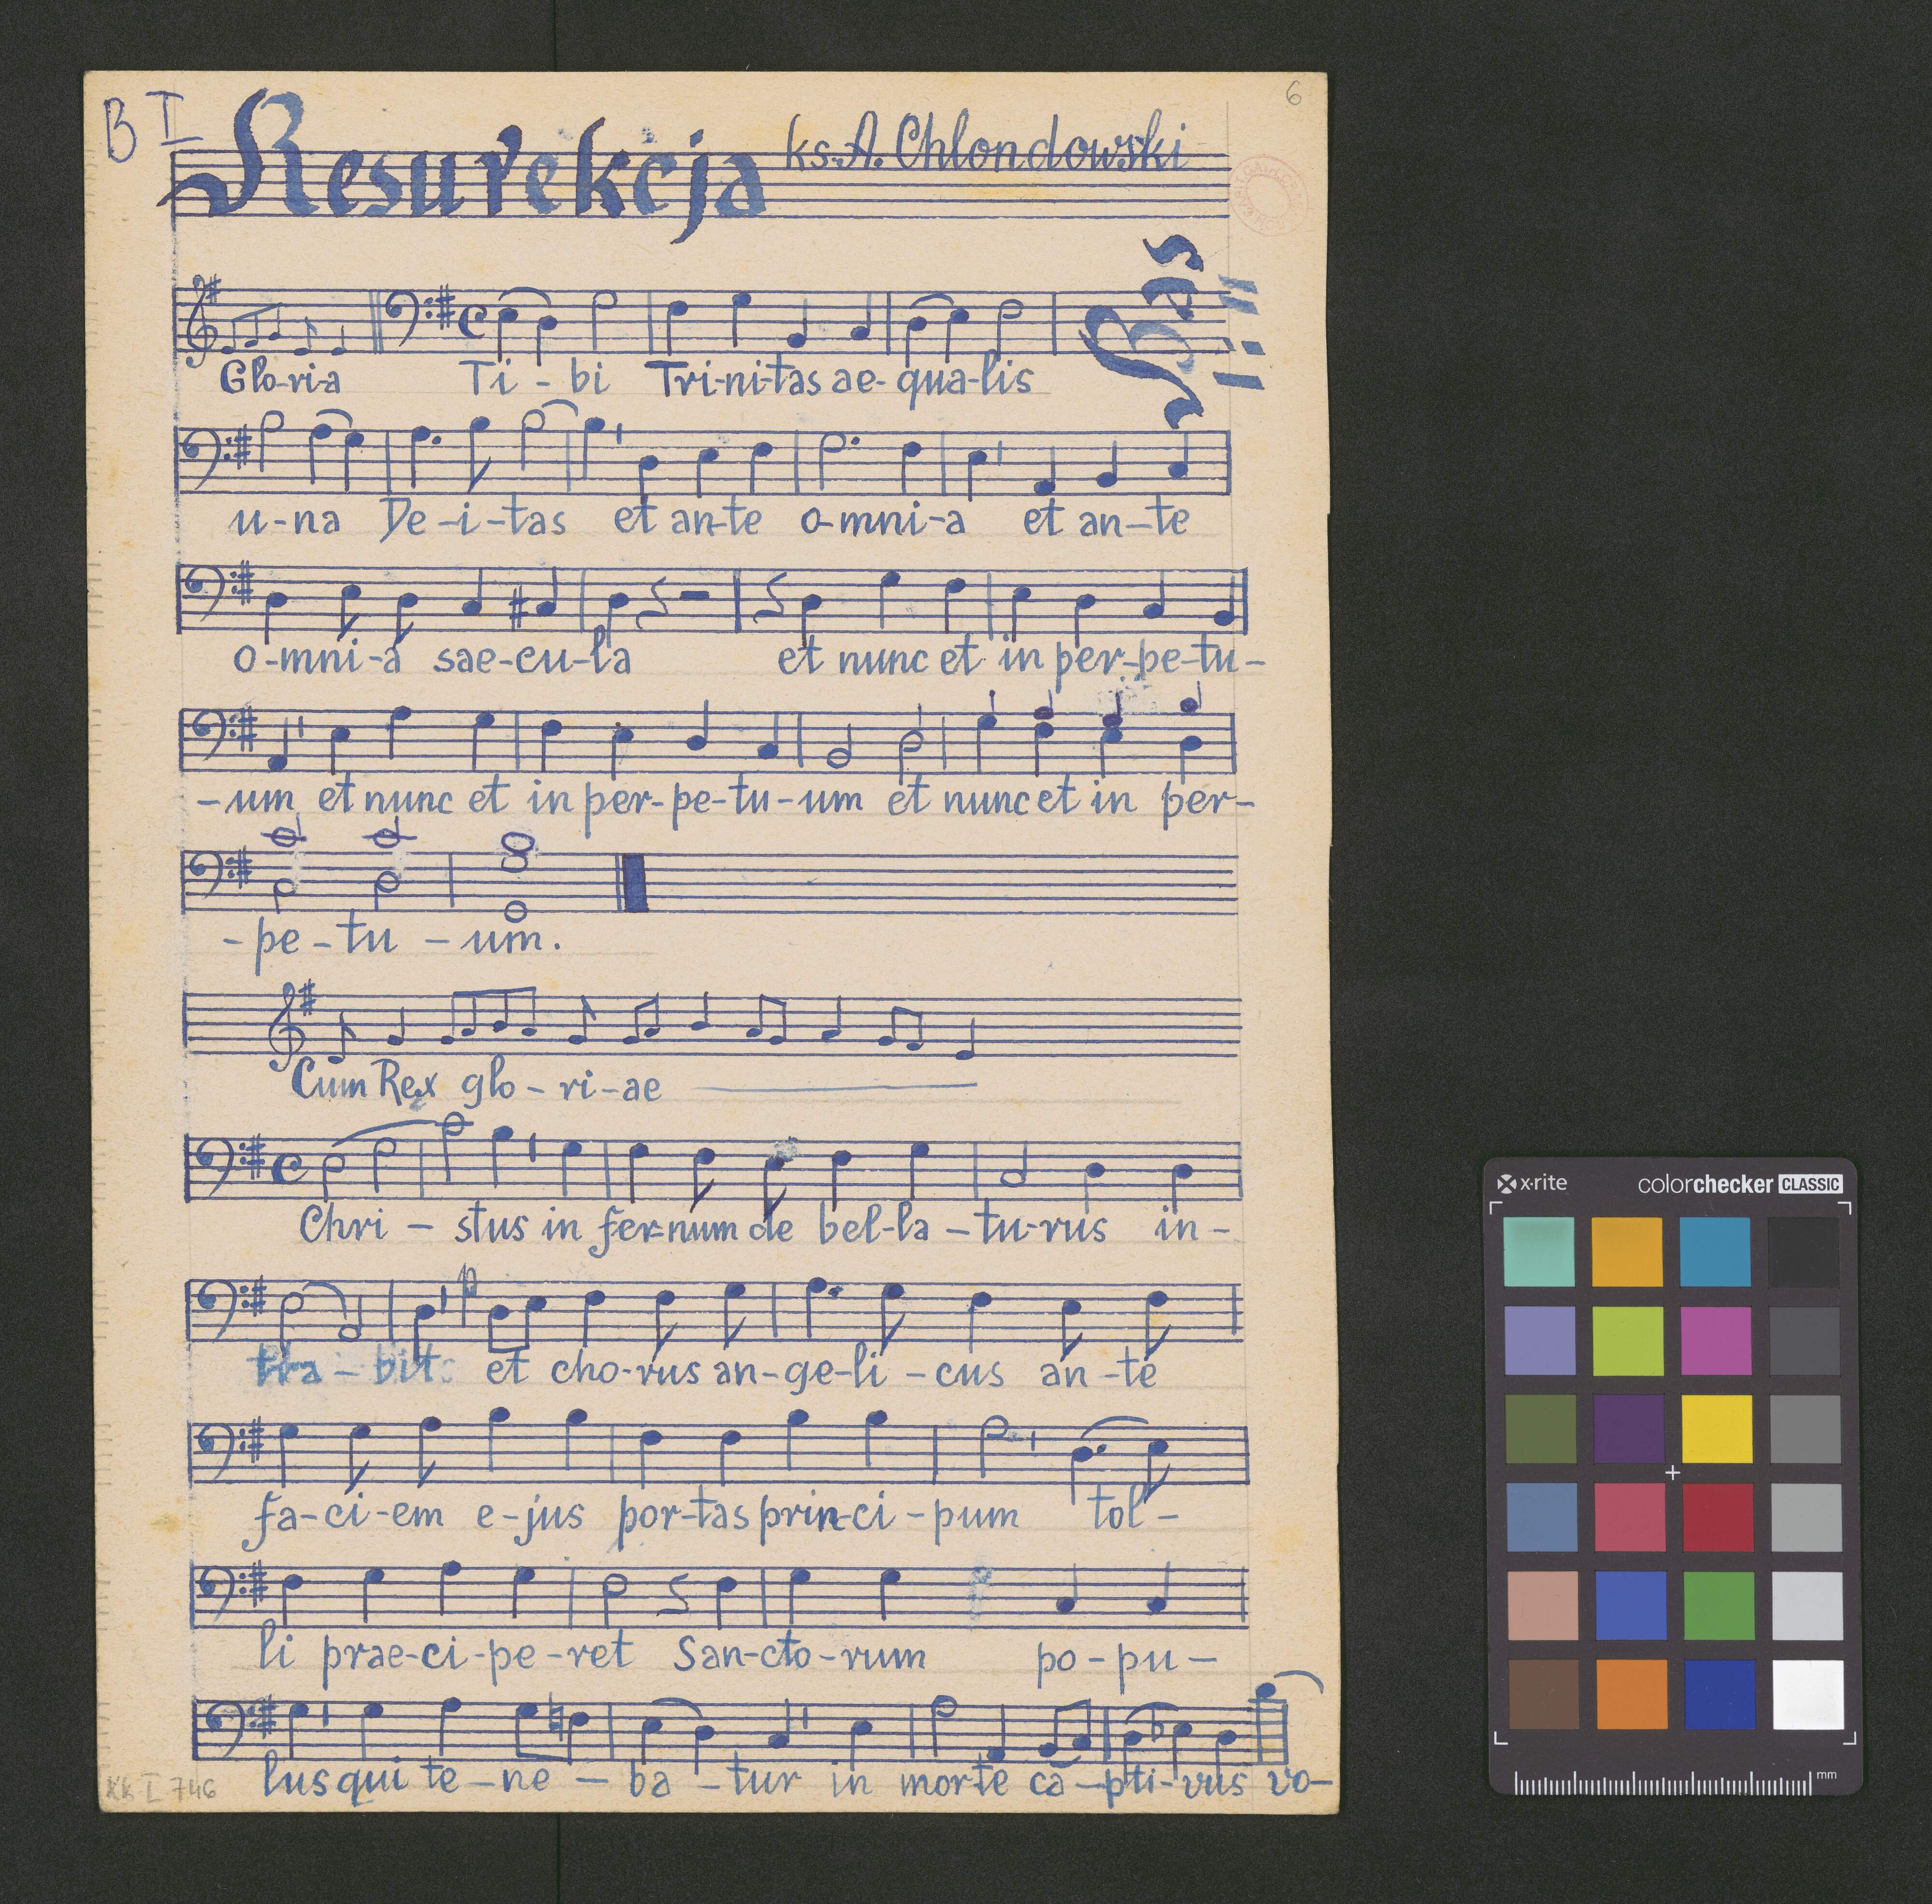 B I
6
Resurekcja ks. A. Chlondowski
Bas II
Glo-ri-a Ti - bi Tri-ni-tas ae-qua-lis
u-na De-i-tas et an-te o-mni-a et an-te
o-mni-a sae-cu-la et nunc et in per-pe-tu-
-um et nunc et in per-pe-tu-um et nunc et in per-
-pe-tu-um.
Cum Rex glo-ri-ae
Chri - stus in fer-num de bel-la-tu-rus in-
tra-bit et cho-rus an-ge-li-cus an-te
fa-ci-em e-jus por-tas prin-ci-pum tol-
li prae-ci-pe-ret San-cto-rum po-pu-
lus qui te-ne-ba-tur in morte ca-pti-vus vo-
KK I 746
x·rite colorchecker CLASSIC
mm